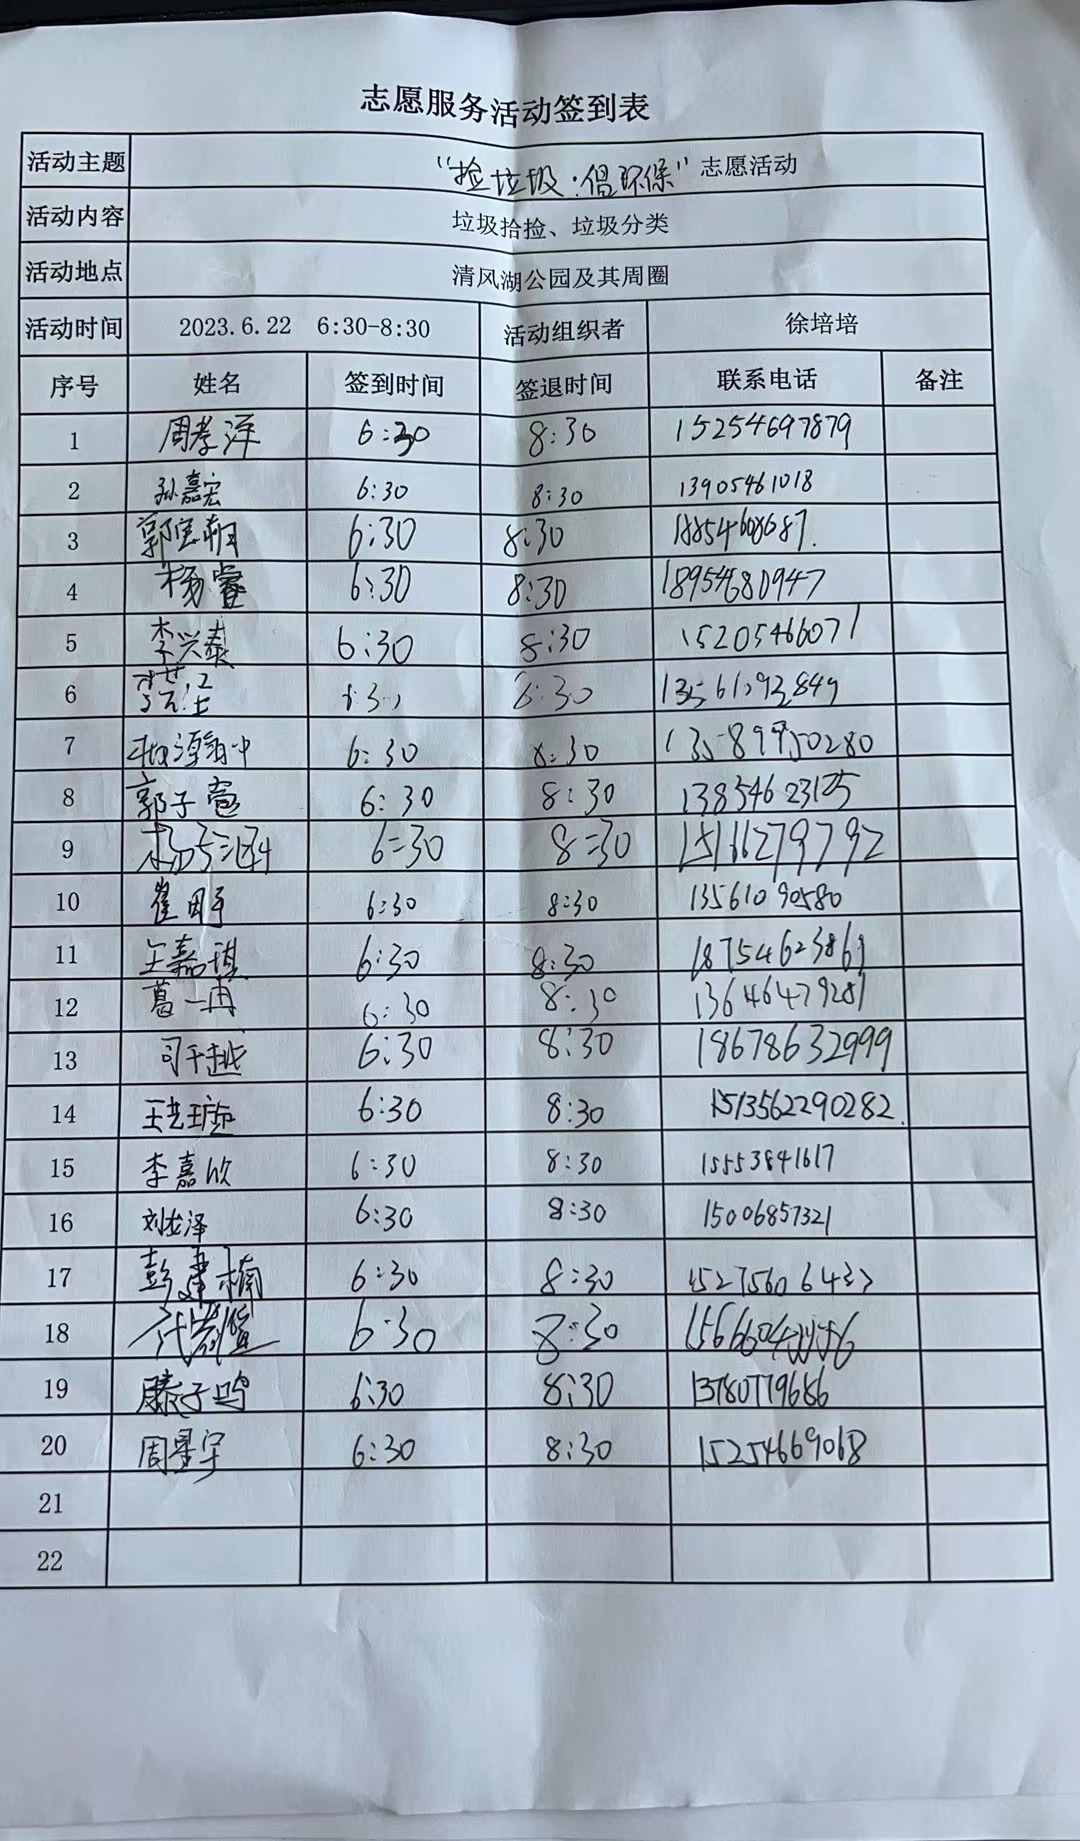 志愿服务活动签到表
活动主题 “捡垃圾·倡环保”志愿活动
活动内容 垃圾拾捡、垃圾分类
活动地点 清风湖公园及其周圈
活动时间 2023.6.22 6:30-8:30 活动组织者 徐培培
序号 姓名 签到时间 签退时间 联系电话 备注
1 周孝洋 6:30 8:30 15254697879
2 孙嘉宏 6:30 8:30 13905461018
3 6:30 8:30 18854608687.
4 杨睿 6:30 8:30 18954680947
5 李兴泰 6:30 8:30 15205466071
6 8:30
7 6:30 8:30
8 郭子 6:30 8:30
9 6=30 8=30 15166279792
10 崔 6:30 8:30 13561090580
11 王嘉琪 6:30 8:30 18754623861
12 葛一冉 6:30 8:30 13646479281
13 司千越 6:30 8:30 18678632999
14 6:30 8:30 1513562290282.
15 李嘉欣 6:30 8:30 15553841617
16 刘龙泽 6:30 8:30 15006857321
17 彭建楠 6:30 8:30
18 6:30 8:30
19 滕子鸣 6:30 8:30 13780779686
20 周星宇 6:30 8:30 15254669068
21
22